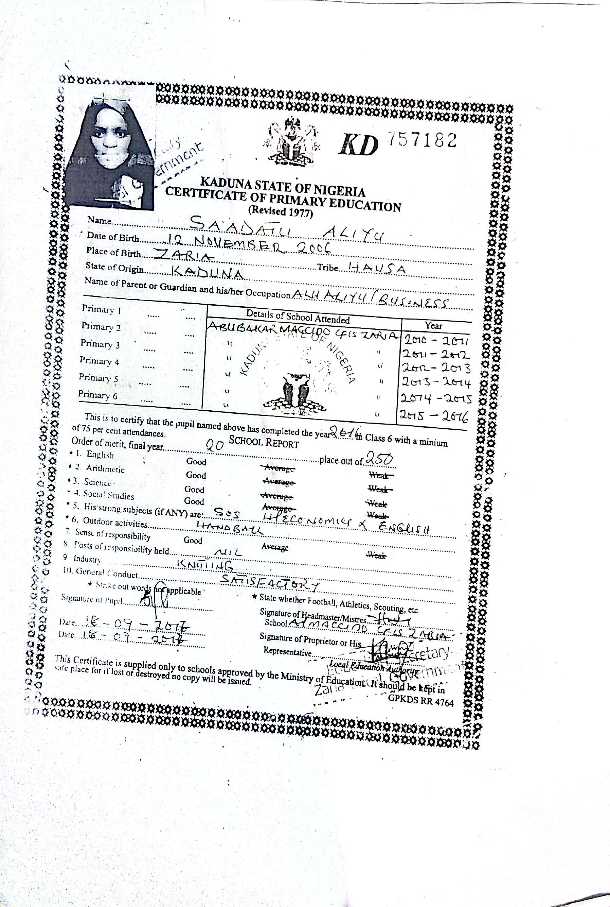 KD 757182
KADUNA STATE OF NIGERIA
CERTIFICATE OF PRIMARY EDUCATION
(Revised 1977)
Name SA'ADATU ALIYU
Date of Birth 12 NOVEMBER 2006
Place of Birth ZARIA Tribe HAUSA
State of Origin KADUNA
Name of Parent or Guardian and his/her Occupation ALH ALIYU / BUSINESS
Details of School Attended Year
Primary 1 ABUBAKAR MAGCIDO ZARIA 2010 - 2011
Primary 2 " " 2011 - 2012
Primary 3 " " 2012 - 2013
Primary 4 " " 2013 - 2014
Primary 5 " " 2014 - 2015
Primary 6 " " 2015 - 2016
KADUNA STATE OF NIGERIA
This is to certify that the pupil named above has completed the year 2016 in Class 6 with a minium
of 75 per cent attendances.
SCHOOL REPORT
Order of merit, final year 20 place out of 250
* 1. English Good Average Weak
* 2. Arithmetic Good Average Weak
* 3. Science Good Average Weak
* 4. Social Studies Good Average Weak
* 5. His strong subjects (if ANY) are: SOS H/ECONOMICS & ENGLISH
* 6. Outdoor activities HANDBALL
7 Sense of responsibility Good Average Weak
8 Posts of responsibility held NIL
9 Industry KNITING
10. General Conduct SATISFACTORY
* Strike out words not applicable * State whether Football, Athletics, Scouting, etc
Signature of Pupil Signature of Headmaster/Mistress
School ZARIA
Date Signature of Proprietor or His
Date Representative Secretary
Local Education Authority
This Certificate is supplied only to schools approved by the Ministry of Education. It should be kept in
safe place for if lost or destroyed no copy will be issued.
GPKDS RR 4764